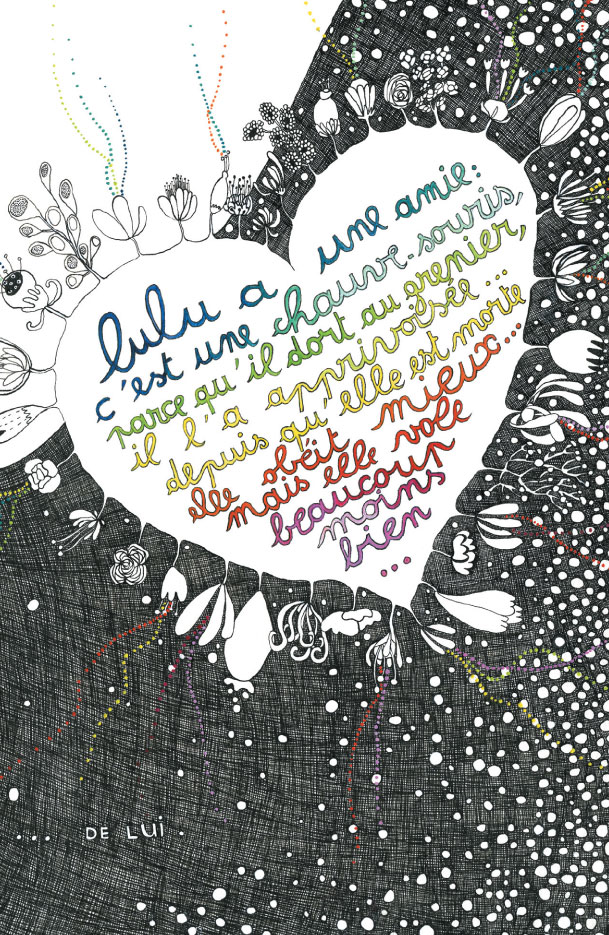 lulu a une amie:
c'est une chauve-souris,
parce qu'il dort au grenier,
il l'a apprivoisée...
depuis qu'elle est morte
elle obéit mieux...
mais elle vole
beaucoup
moins
bien
...
.... DE LUI.